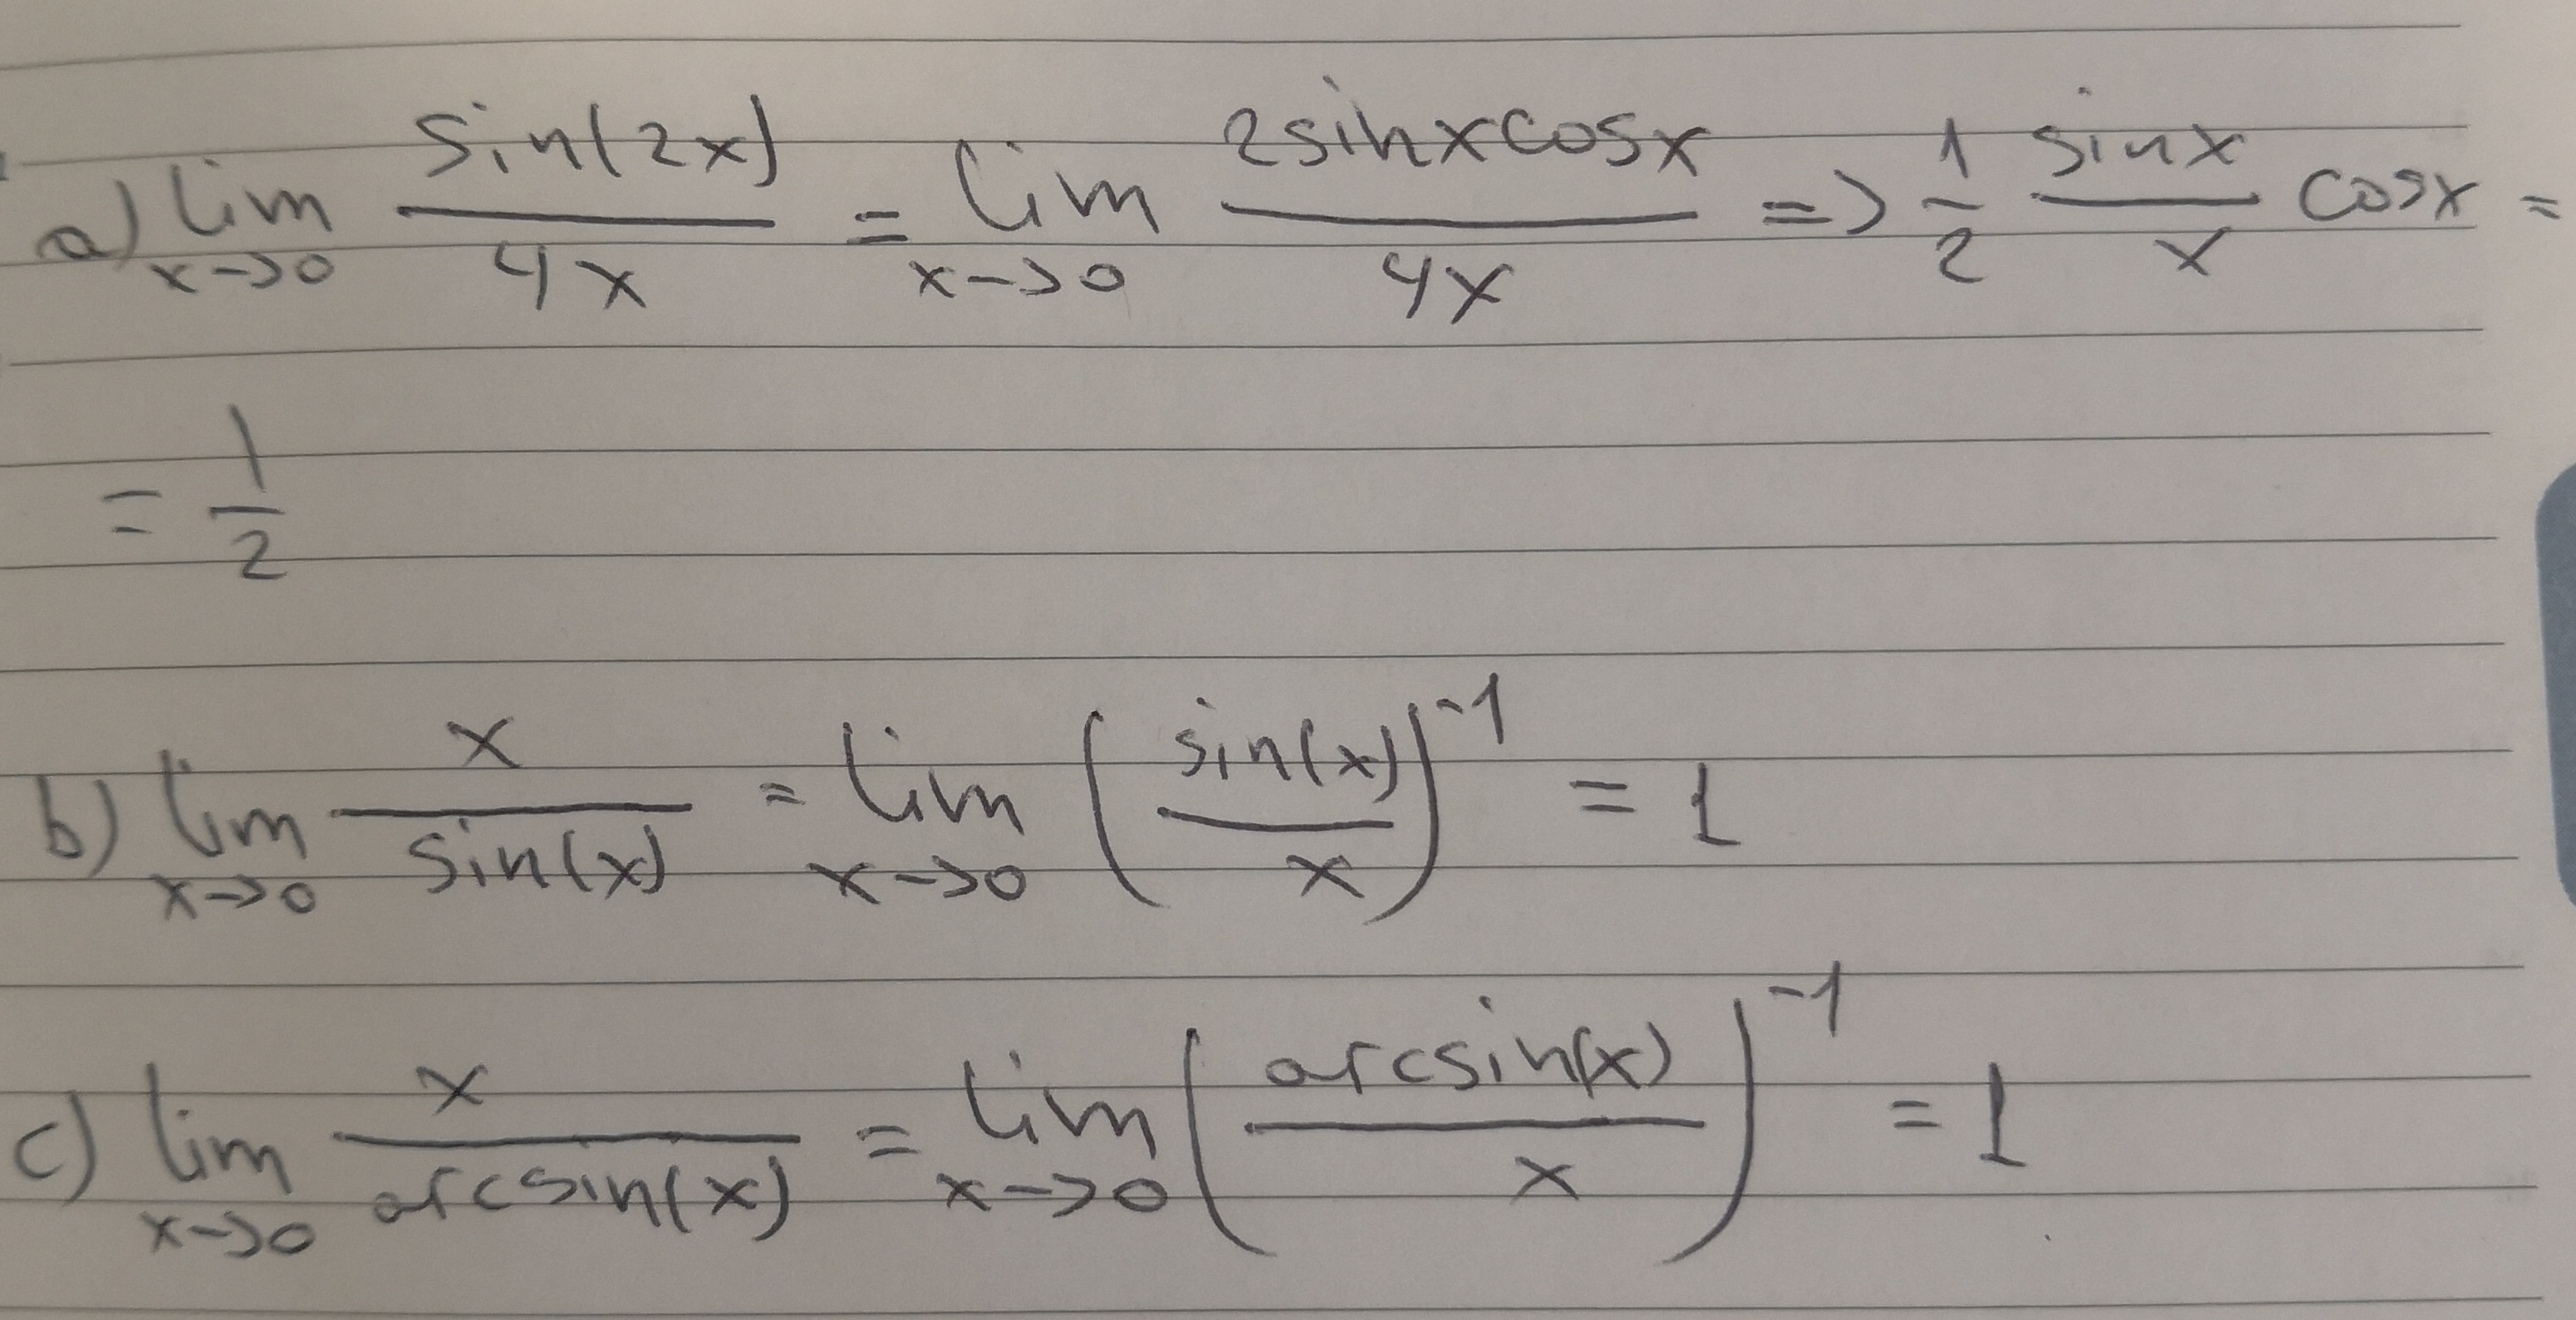 a) lim x->0 sin(2x)/4x = lim x->0 2sinxcosx/4x => 1/2 sinx/x cosx =
= 1/2
b) lim x->0 x/sin(x) = lim x->0 (sin(x)/x)^-1 = 1
c) lim x->0 x/arcsin(x) = lim x->0 (arcsin(x)/x)^-1 = 1